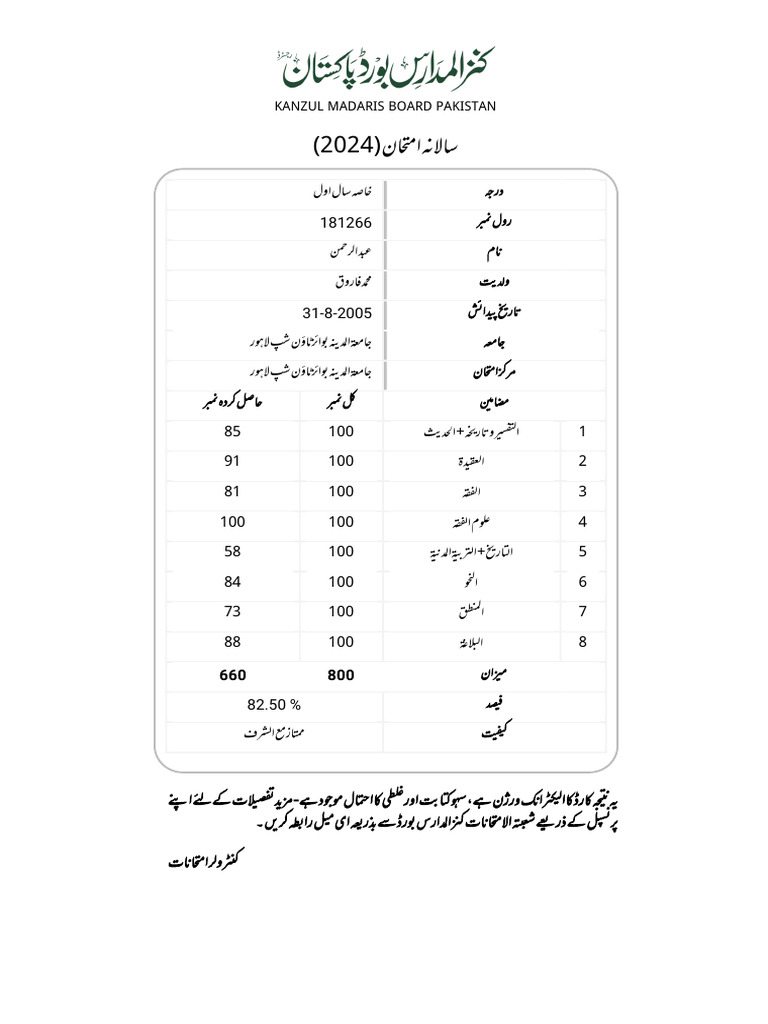 کنز المدارس بورڈ پاکستان
KANZUL MADARIS BOARD PAKISTAN
سالانہ امتحان (2024)
درجہ خاصہ سال اول
رول نمبر 181266
نام عبدالرحمن
ولدیت محمد فاروق
تاریخ پیدائش 31-8-2005
جامعہ جامعۃ المدینہ بوائز ٹاؤن شپ لاہور
مرکز امتحان جامعۃ المدینہ بوائز ٹاؤن شپ لاہور
مضامین کل نمبر حاصل کردہ نمبر
1 التفسیر و تاریخہ + الحدیث 100 85
2 العقیدۃ 100 91
3 الفقہ 100 81
4 علوم الفقہ 100 100
5 التاریخ + التربیۃ المدنیۃ 100 58
6 النحو 100 84
7 المنطق 100 73
8 البلاغۃ 100 88
میزان 800 660
فیصد 82.50 %
کیفیت ممتاز مع الشرف
یہ نتیجہ کارڈ کا الیکٹرانک ورژن ہے، سہو کتابت اور غلطی کا احتمال موجود ہے- مزید تفصیلات کے لئے اپنے
پرنسپل کے ذریعے شعبۃ الامتحانات کنز المدارس بورڈ سے بذریعہ ای میل رابطہ کریں ۔
کنٹرولر امتحانات